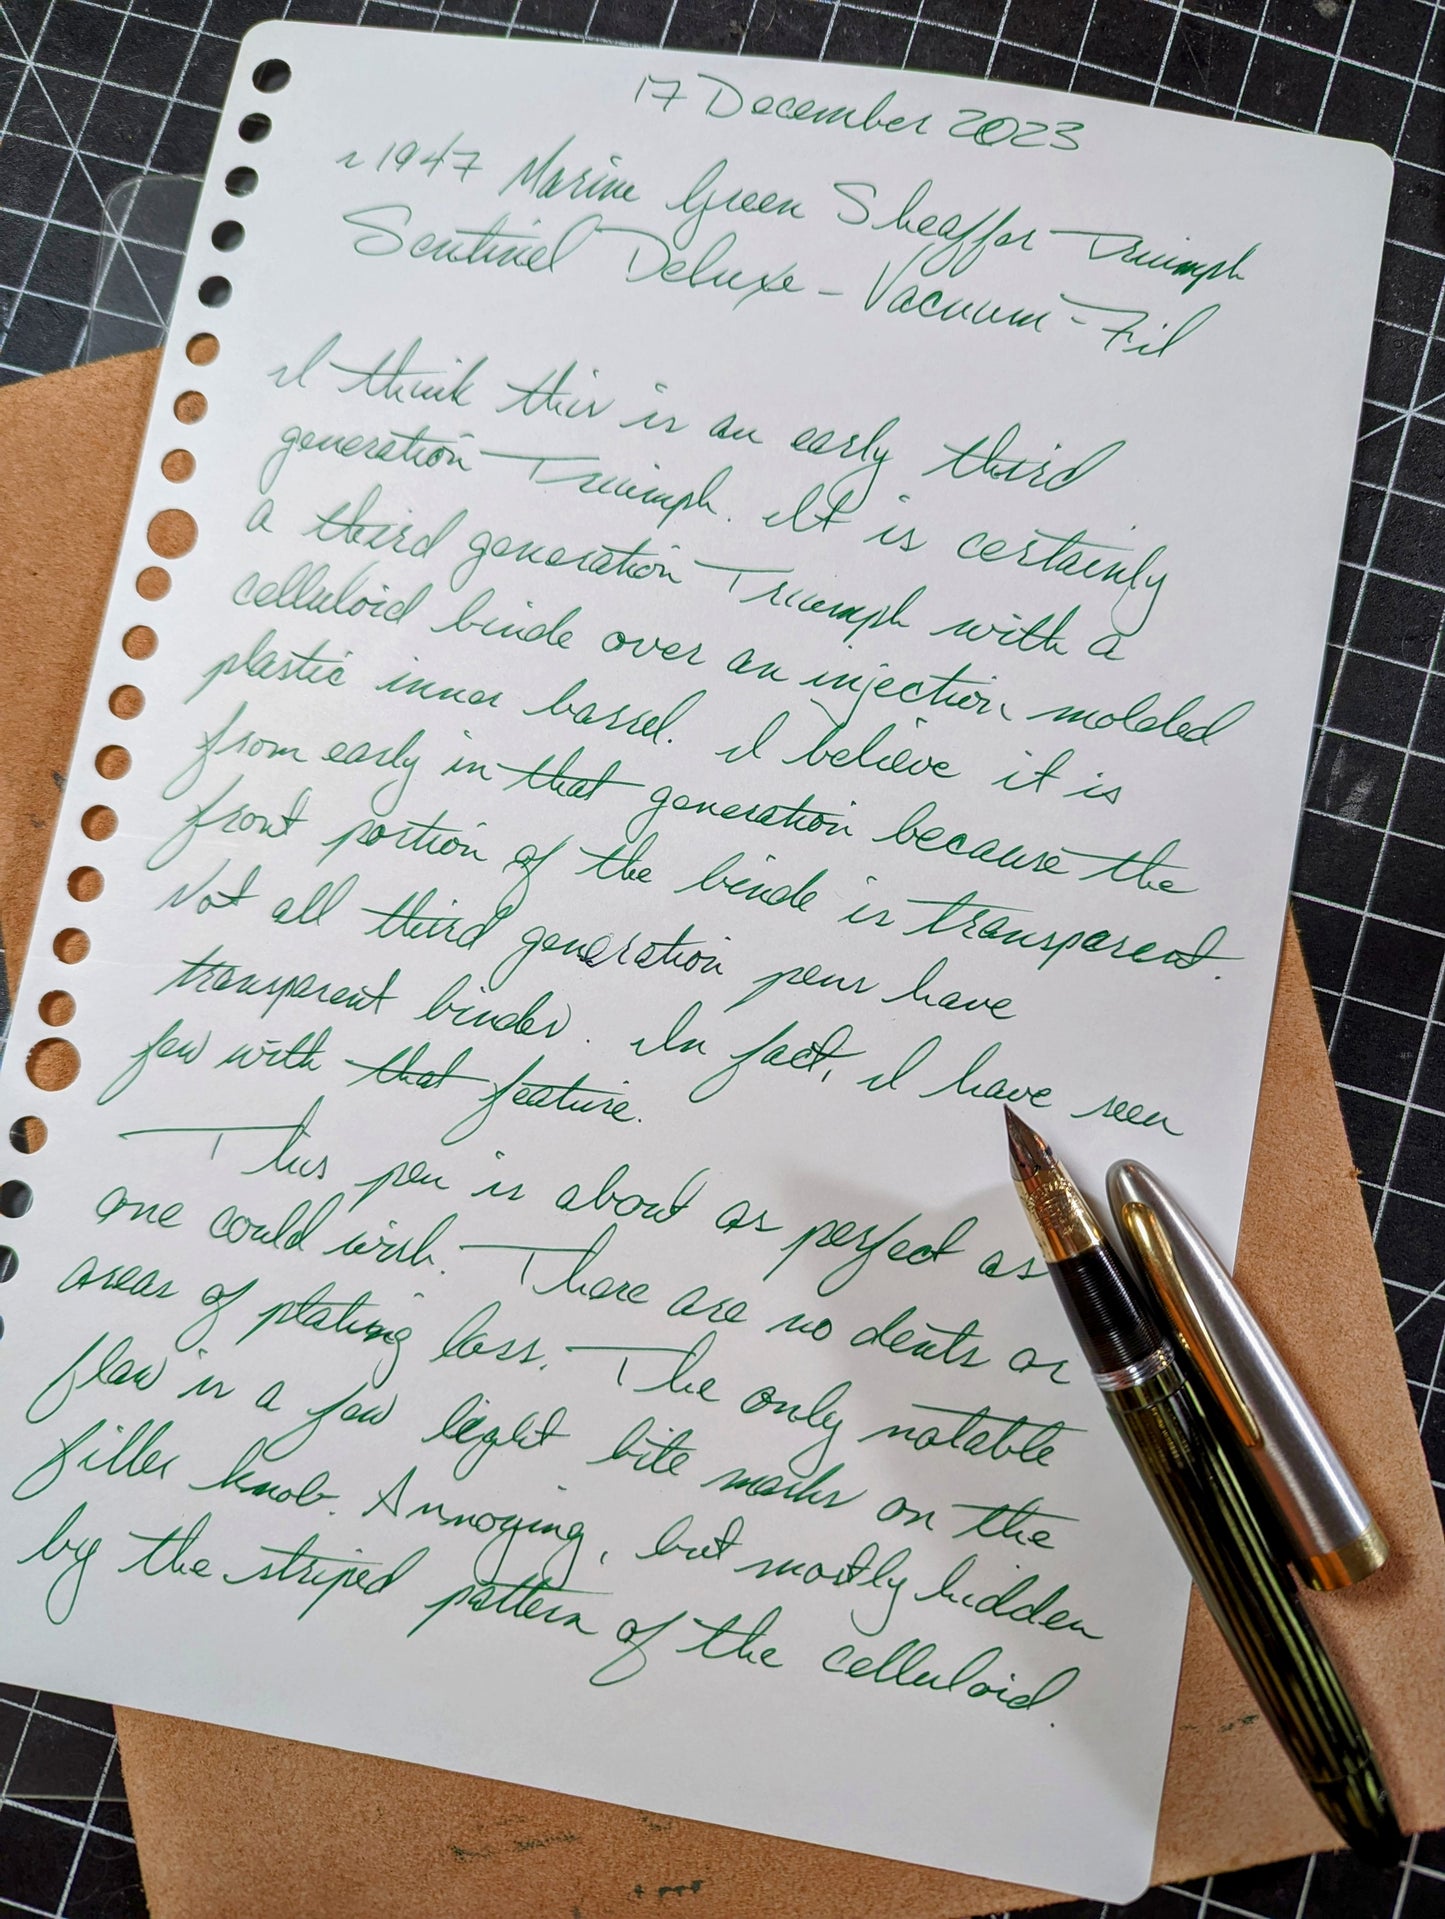 17 December 2023
~1947 Marine Green Sheaffer Triumph
Sentinel Deluxe - Vacuum-Fil
I think this is an early third
generation Triumph. It is certainly
a third generation Triumph with a
celluloid binde over an injection molded
plastic inner barrel. I believe it is
from early in that generation because the
front portion of the binde is transparent.
Not all third generation pens have
transparent bindes. In fact, I have seen
few with that feature.
This pen is about as perfect as
one could wish. There are no dents or
areas of plating loss. The only notable
flaw is a few light bite marks on the
filler knob. Annoying, but mostly hidden
by the striped pattern of the celluloid.